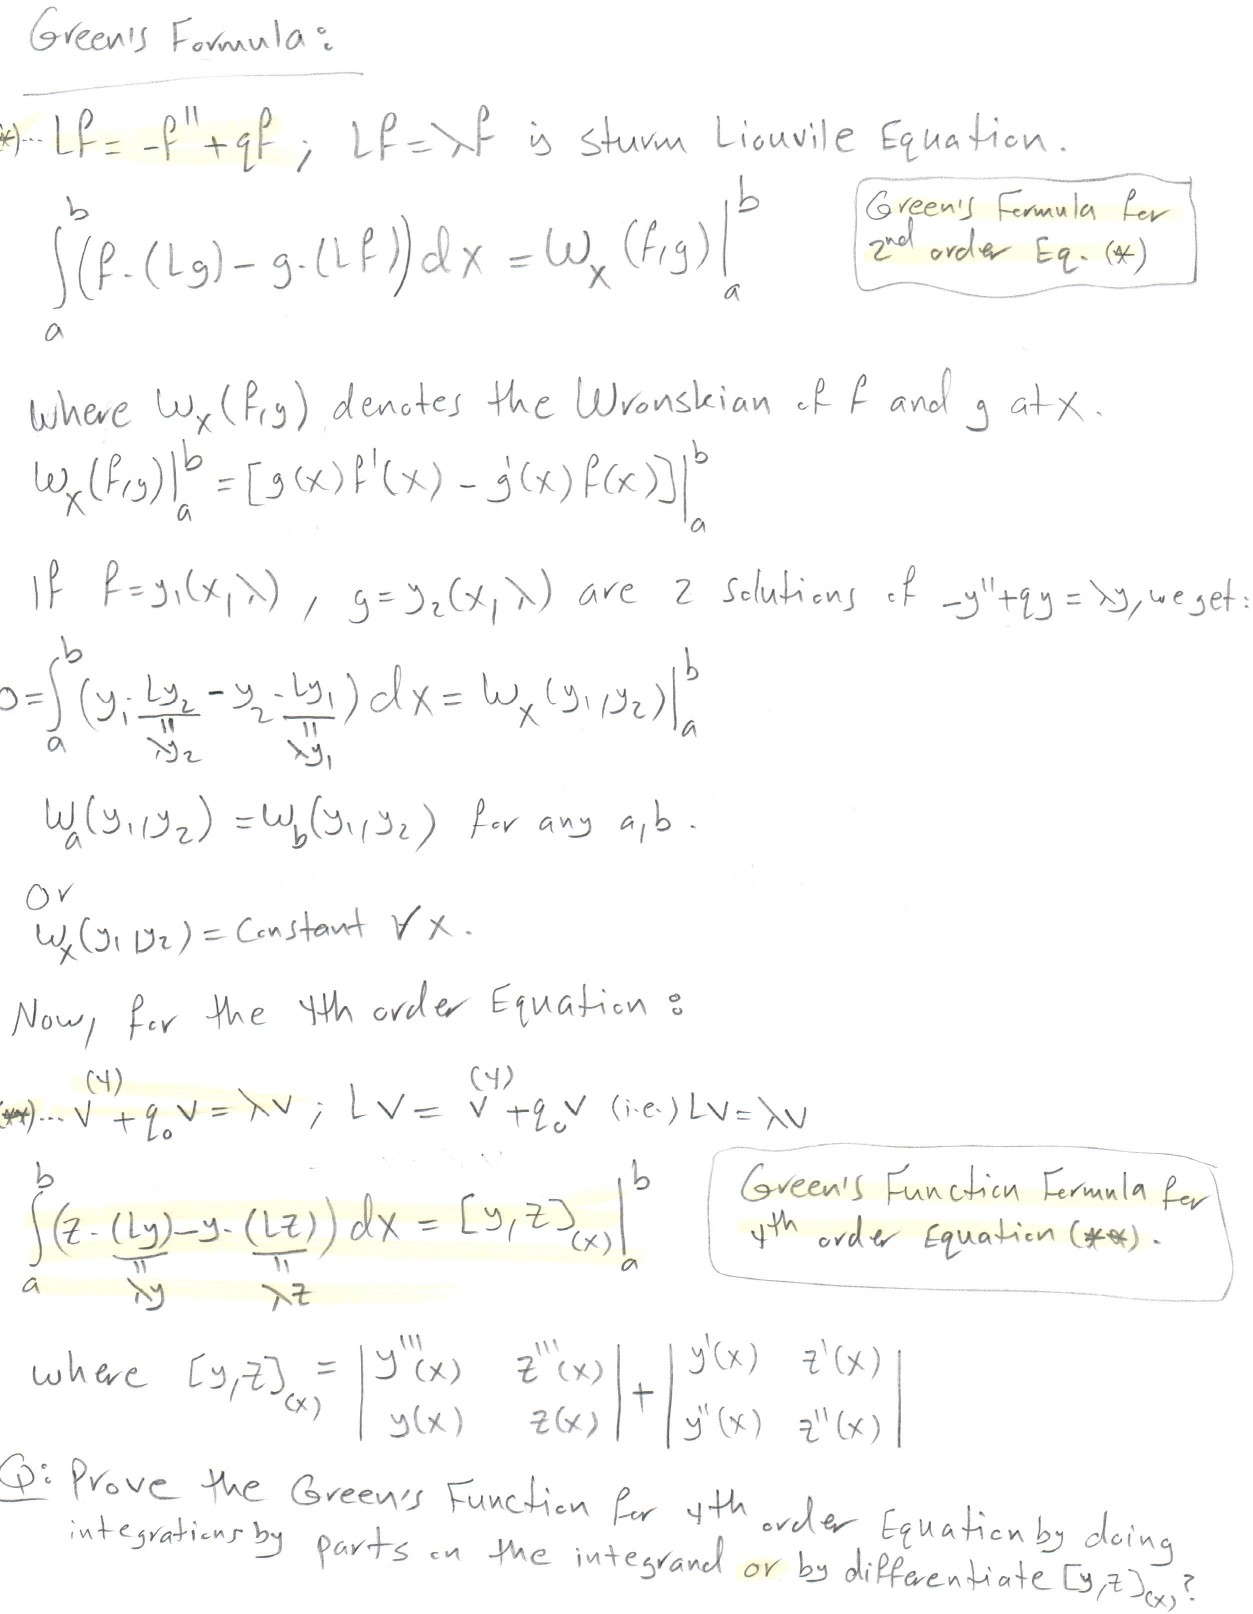 Green's Formula:
(*)... Lf = -f'' + qf ; Lf = λf is sturm Liouvile Equation.
∫_a^b (f·(Lg) - g·(Lf)) dx = W_x(f,g)|_a^b
Green's Formula for
2nd order Eq. (*)
where W_x(f,g) denotes the Wronskian of f and g at x.
W_x(f,g)|_a^b = [g(x)f'(x) - g'(x)f(x)]|_a^b
If f = y₁(x,λ) , g = y₂(x,λ) are 2 solutions of -y''+qy = λy, we get:
0 = ∫_a^b (y₁·Ly₂ - y₂·Ly₁) dx = W_x(y₁,y₂)|_a^b
= λy₂ = λy₁
W_a(y₁,y₂) = W_b(y₁,y₂) for any a,b.
Or
W_x(y₁,y₂) = Constant ∀ x.
Now, for the 4th order Equation:
(**)... v⁽⁴⁾ + q₀v = λv ; Lv = v⁽⁴⁾ + q₀v (i.e.) Lv = λv
∫_a^b (z·(Ly) - y·(Lz)) dx = [y,z]_(x)|_a^b
= λy = λz
Green's Function Formula for
4th order Equation (**).
where [y,z]_(x) = |y'''(x) z'''(x)| + |y'(x) z'(x)|
|y(x) z(x)| |y''(x) z''(x)|
Q: Prove the Green's Function for 4th order Equation by doing
integrations by parts on the integrand or by differentiate [y,z]_(x)?